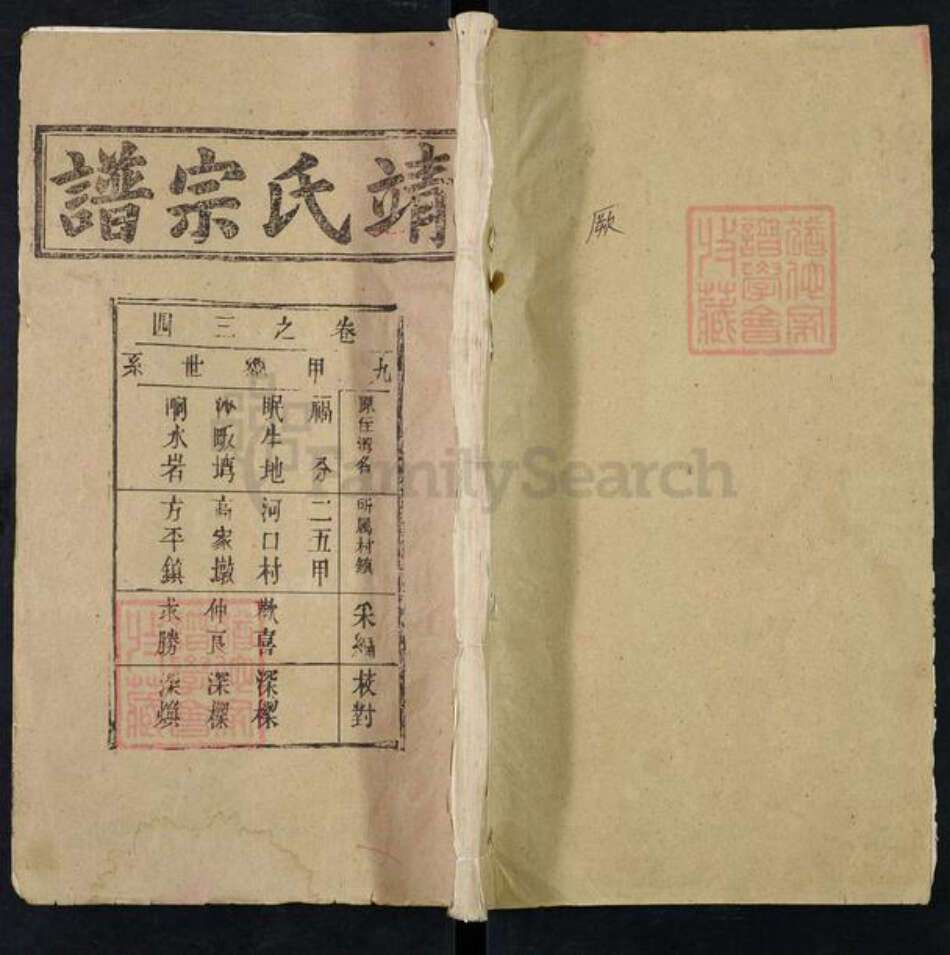 靖氏宗譜
卷之三四
九甲 世系
原住灣名 所属村鎮 采編 校對
福 分 二五甲
眠牛地 河口村 歡喜 深樑
畈塆 高家墩 仲良 深樑
响水岩 方平鎮 求勝 深煥
厥
譜學會
收藏
FamilySearch